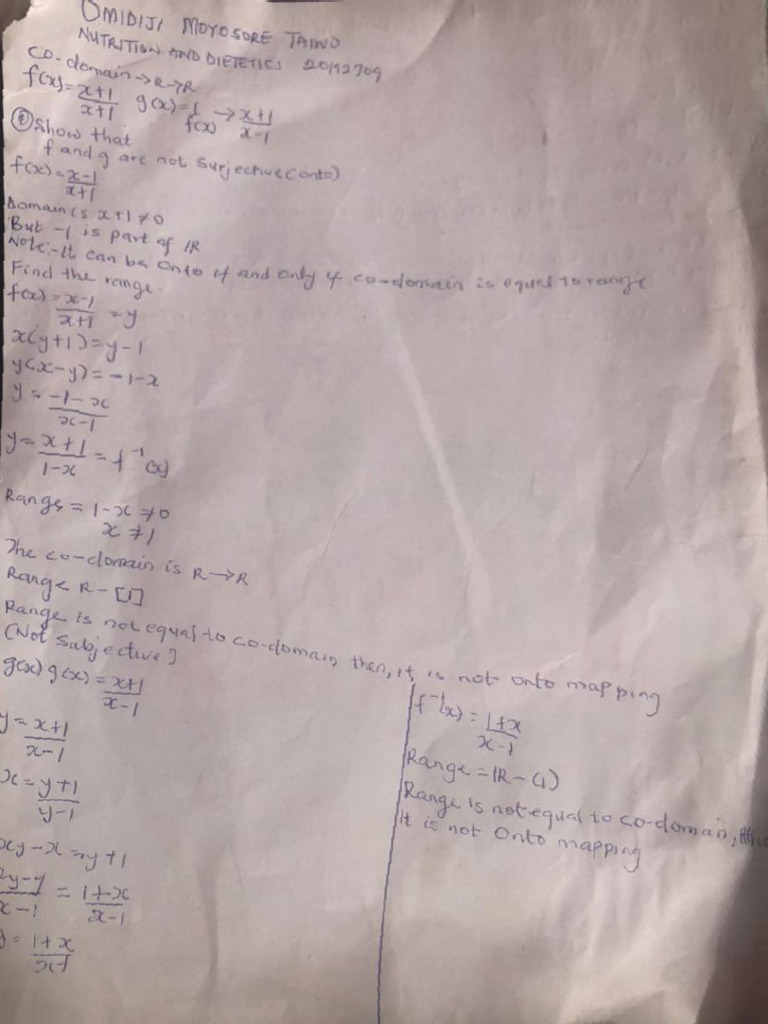 OMIDIJI MOYOSORE TAIWO
NUTRITION AND DIETETICS 20192709
Co-domain → R→R
f(x) = x+1/x+1 g(x) = 1/f(x) → x+1/x-1
Show that
f and g are not Surjective (onto)
f(x) = x-1/x+1
Domain is x+1≠0
But -1 is part of IR
Note:- It can be Onto if and only if co-domain is equal to range
Find the range.
f(x) = x-1/x+1 = y
x(y+1) = y-1
y(x-y) = -1-x
y = -1-x/x-1
y = x+1/1-x = f⁻¹(x)
Range = 1-x ≠0
x ≠1
The co-domain is R→R
Range R-[1]
Range is not equal to co-domain, then, it is not onto mapping
(Not Subjective]
g(x) g(x) = x+1/x-1
y = x+1/x-1
x = y+1/y-1
xy-x = y+1
y-y/x-1 = 1+x/x-1
y = 1+x/x-1
f⁻¹(x) = 1+x/x-1
Range = IR-(1)
Range is not equal to co-domain,
It is not Onto mapping